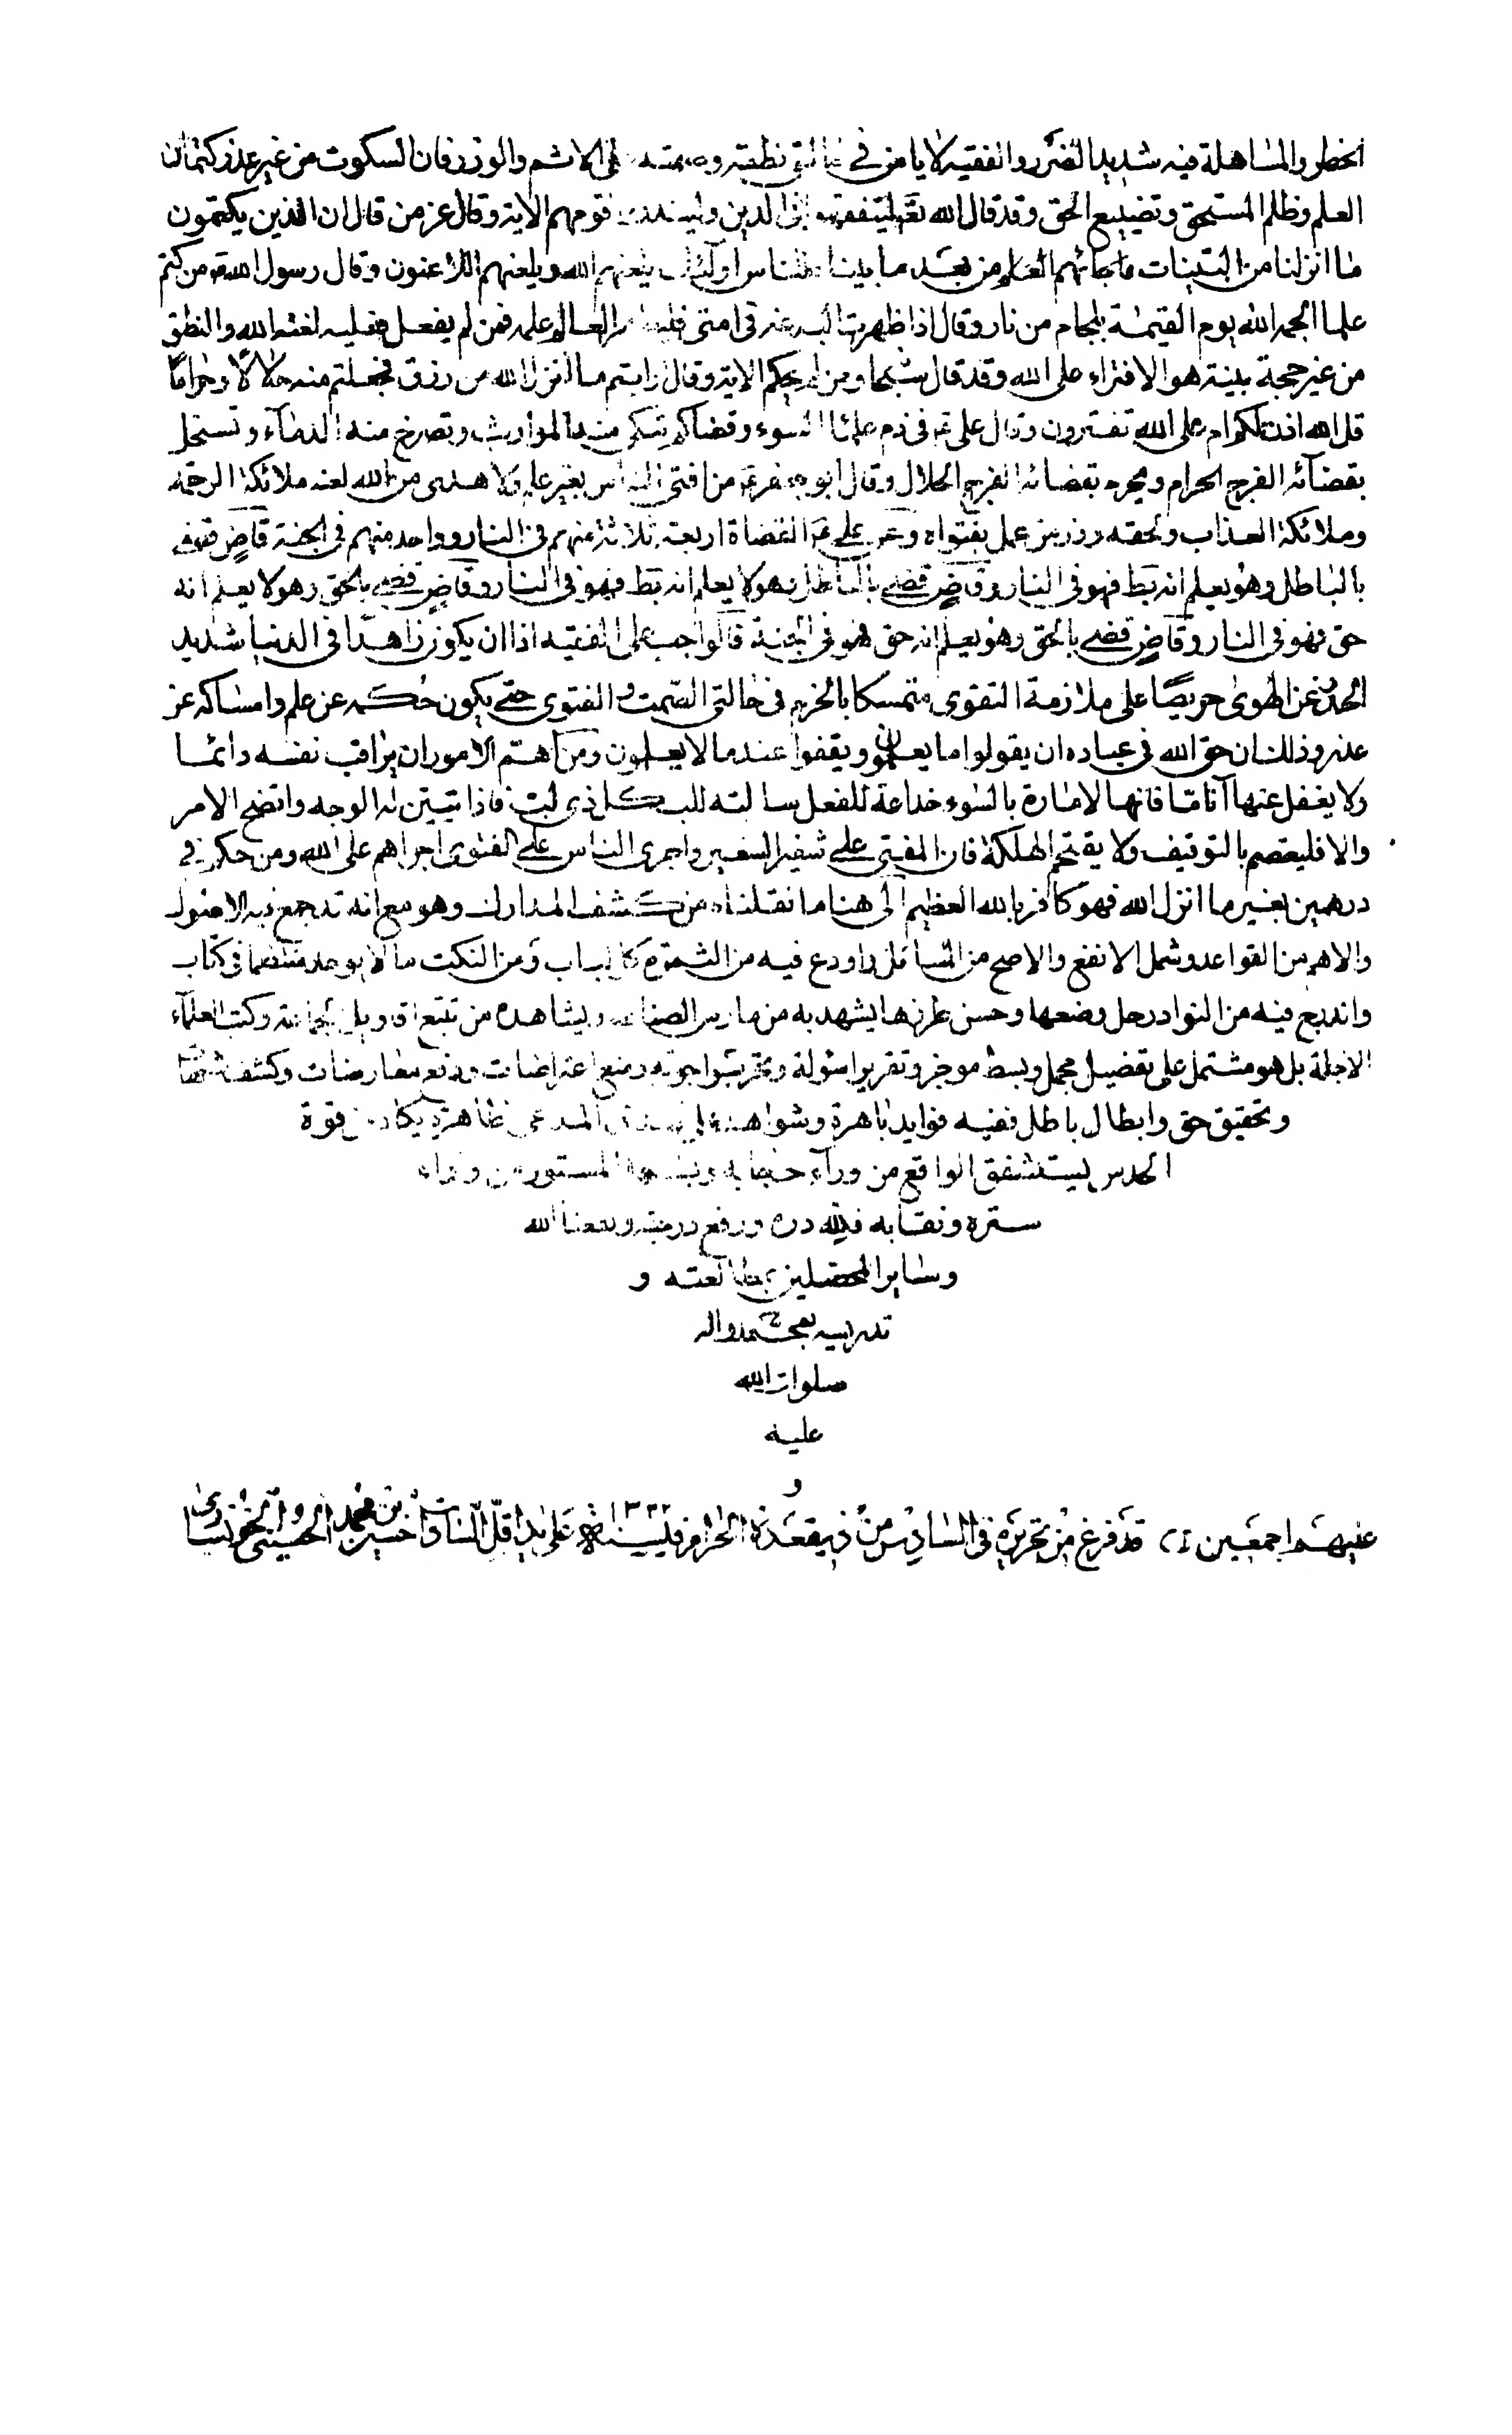 الخطر والمساهلة فيه شديد الضرر والفقيه لا يامن في نطقه على الاثم والوزر فان السكوت من غير عذر كتمان
العلم وظلم المستحق وتضييع الحق وقد قال الله تع ليتفقهوا فى الدين ولينذروا قومهم الاية وقال عز من قال ان الذين يكتمون
ما انزلنا من البينات ما جائهم العلم من بعد ما بيناه للناس اولئك يلعنهم الله ويلعنهم اللاعنون وقال رسول الله ص من كتم
علما الجمه الله يوم القيمة بلجام من نار وقال اذا ظهرت البدعة فى امتى فليظهر العالم علمه فمن لم يفعل فعليه لعنة الله والنطق
من غير حجة بينة هو الافتراء على الله وقد قال سبحانه ومن لم يحكم الاية وقال ارايتم ما انزل الله من رزق فجعلتم منه حلالا وحراما
قل الله اذن لكم ام على الله تفترون وقال على ع فى ذم علماء السوء وقضاتهم منه المواريث وتصرخ منه الدماء وتستحل
بقضائه الفرج الحرام ويحرم بقضائه الفرج الحلال وقال ابو جعفر ع من افتى الناس بغير علم ولا هدى من الله لعنه ملائكة الرحمة
وملائكة العذاب ولحقه وزر من عمل بفتواه وعن على ع القضاة اربعة ثلاثة منهم فى النار وواحد منهم فى الجنة قاض قضى
بالباطل وهو يعلم انه بط فهو فى النار وقاض قضى بالباطل وهو لا يعلم انه بط فهو فى النار وقاض قضى بالحق وهو لا يعلم انه
حق فهو فى النار وقاض قضى بالحق وهو يعلم انه حق فهو فى الجنة فالواجب على الفقيه اذا ان يكون زاهدا فى الدنيا شديد
الحذر عن الهوى حريصا على ملازمة التقوى متمسكا بالحزم فى حالتى الصمت والفتوى حتى يكون حكمه عن علم وامساكه عن
عذر وذلك ان حق الله فى عباده ان يقولوا ما يعلمون ويقفوا عند ما لا يعلمون ومن اهم الامور ان يراقب نفسه دائما
ولا يغفل عنها آنا ما فانها لامارة بالسوء خداعة للفعل سالبة للب كل ذى لب فاذا تبين له الوجه واتضح الامر
والا فليعتصم بالتوقيف ولا يقتحم الهلكة فان المفتى على شفير السعير واجرى الناس على الفتوى اجراهم على الله ومن حكم فى
درهمين بغير ما انزل الله فهو كافر بالله العظيم الى هنا ما نقلناه من كشف المدارك وهو مع انه قد جمع فيه الاصول
والاهم من القواعد وشمل الانفع والاصح من المسائل واودع فيه من الثمرة كل لباب ومن النكت ما لا يوجد منتظما فى كتاب
واندرج فيه من النوادر وضعها وحسن طرزها يشهد به من مارس الصناعة ويشاهده من تتبع اقاويل الجماعة وكتب العلماء
الاجلة بل هو مشتمل على تفصيل مجمل وبسط موجز وتقرير اسئولة وتحرير اجوبة ومنع اعتراضات ودفع معارضات وكشف
وتحقيق حق وابطال باطل ففيه فوايد باهرة وشواهد المدعى ظاهرة يكاد من قوة
الحدس يستشفق الواقع من وراء حجابه المستور من وراء
ستره ونقابه فلله دره ورفع درجته ونفعنا الله
وساير المحصلين بمطالعته و
تدريسه بمحمد واله
صلوات الله
عليه
و
عليهم اجمعين قد فرغ من تحريره فى السادس من ذيقعدة الحرام ١٣٣٢ على يد اقل السادات حسين بن محمد الحسينى الخونسارى